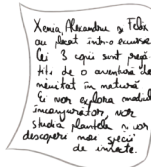 Xenia, Alexandru și Felix
au plecat într-o excursie
Cei 3 copii sunt pregă
tiți de o aventură de
neuitat în natură
Ei vor explora modul
înconjurător, vor
studia plantele și vor
descoperi mai specii
de insecte.